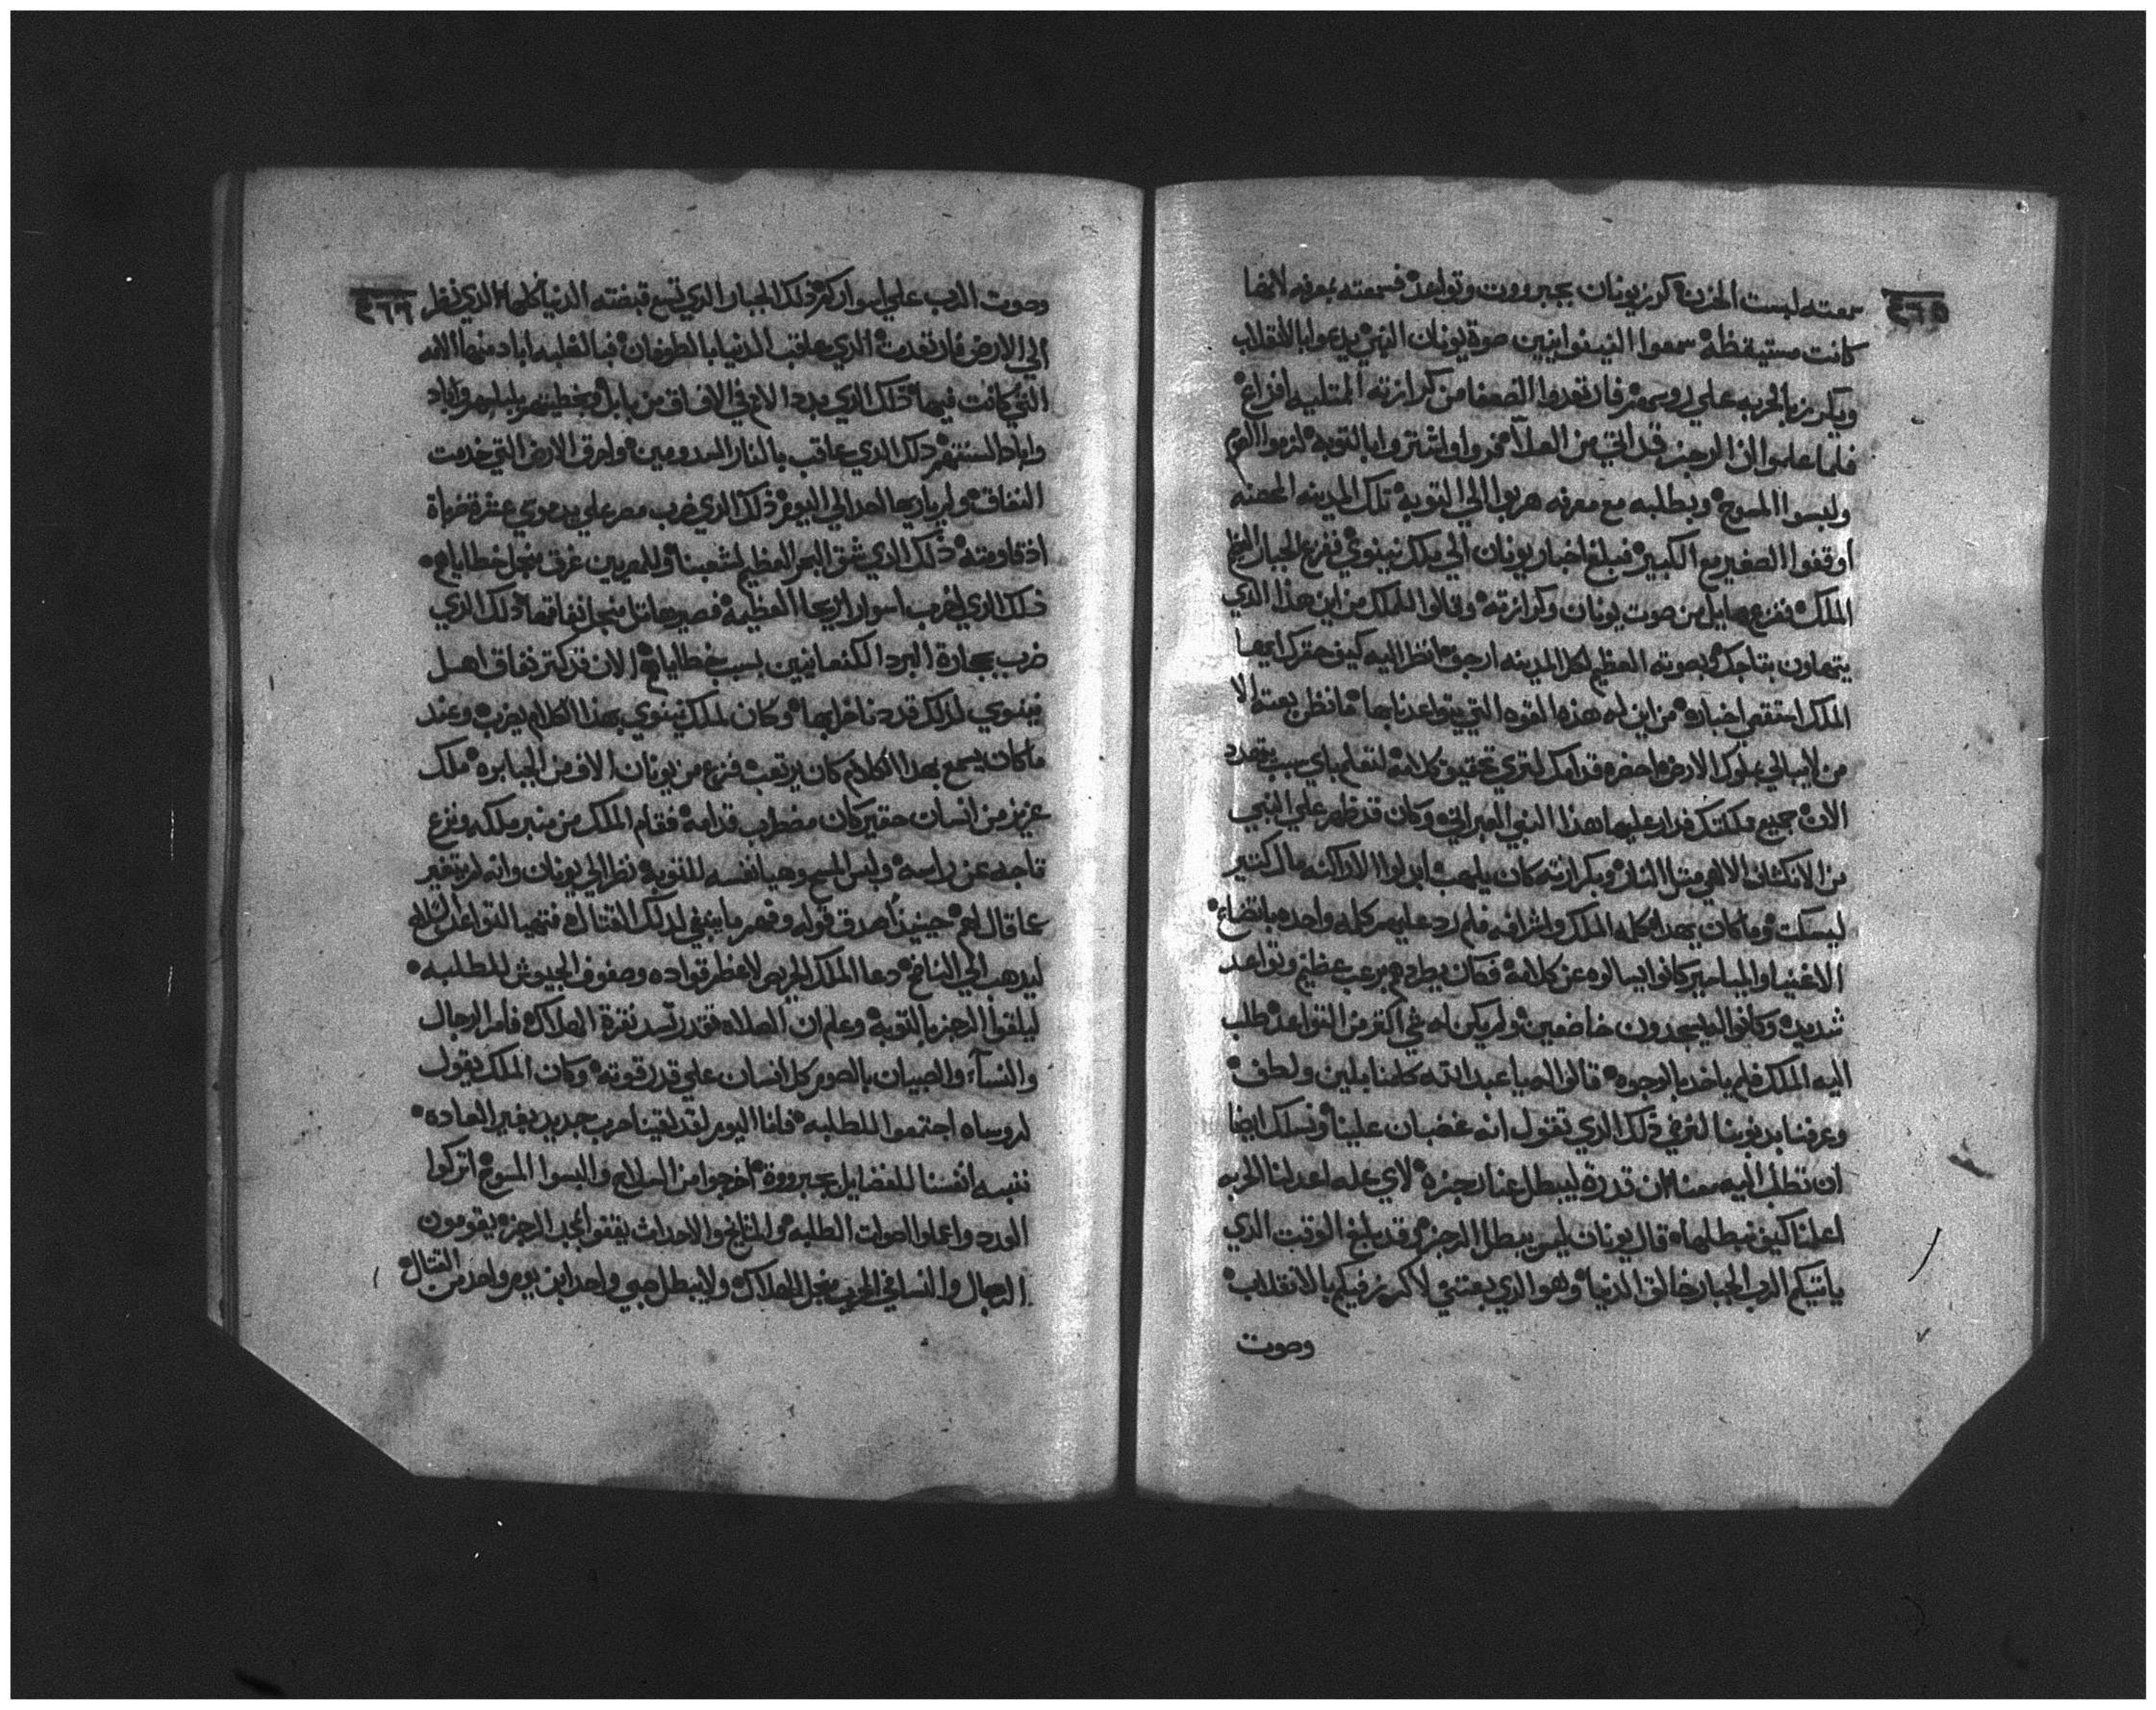 ٤٦٥
سمعته لبست الحزن كرز يونان بجبرووت وتواعد فسمعته بمعرفه لانها
كانت مستيقظة سمعوا النينوانيين صوة يونان النبي يدعوا بالانقلاب
ويكرز بالخربه علي روسهم فارتعدوا الضعفا من كرازته الممتليه افزاع
فلما علموا ان الرجز قد اتي من العلا فزوا واشتروا بالتوبة لزموا الصوم
ولبسوا المسوح وبطلبه مع معرفه هربوا الي التوبة تلك المدينه المحصنه
اوقفوا الصغير مع الكبير فبلغ اخبار يونان الي ملك نينوي ففزع الجبار العظيم
الملك ففزع من صوت يونان وكرازته وقالوا للملك من اين هذا الذي
يتهاون بتاجك وبصوته العظيم لكل المدينه ارجف انظر اليه كيف
الملك استقصي اخباره من اين له هذه القوه التي يتواعدنا بها
من لا يبالي بملوك الارض احضره قدامك لتري تحقيق كلامه لتعلم باي سبب يتهدد
الان جميع مملكتك عليها هذا النبي العبراني وكان قد ظهر علي النبي
من الانكشاف الالهي مثل النار وبكرازته كان يلهب مال كتير
ليسكت وما كان بهذا كلمه الملك واشرافه فلم رد عليهم كلمه واحده باتضاع
الاغنيا والمياسير كانوا يسالوه عن كلامه فكان يطردهم برعب عظيم وتواعد
شديد وكانوا اليه يسجدون خاضعين ولم يكن له شي اكتر من التواعد طلب
اليه الملك فلم ياخد بالوجوه قالوا له يا عبد الله كلمنا بلين ولطف
وعرفنا بذنوبنا لنرضي ذلك الذي تقول انه غضبان علينا ونسلك ايضا
ان تطلب اليه معنا لان قدرة ليبطل عنا رجزه لاي عله اعد لنا الخربه
اعلنا كيف نبطلها قال يونان ليس يبطل الرجز وقد بلغ الوقت الذي
ياتيكم الرب الجبار خالق الدنيا وهو الذي بعتني لاكرز فيكم بالانقلاب
وصوت
٤٦٦
وصوت الرب علي اسواركم ذلك الجبار الذي تسع قبضته الدنيا كلها الذي نظر
الي الارض فارتعدت الذي عاقب الدنيا بالطوفان فبالغلبه اباد منها الاثمه
التي كانت فيها ذلك الذي بدد الامم في الافاق من بابل وبخطيتهم بلبلهم واباد
واباد السنتهم ذلك الذي عاقب بالنار السدوميين واحرق الارض التي خدمت
النفاق ولم ياريها احد الي اليوم ذلك الذي ضرب مصر علي يد موسي عشرة ضرباة
اذ قاومته ذلك الذي شق البحر العظيم لشعبنا وللمصريين غرق بجل خطاياهم
ذلك الذي اخرب اسوار اريحا العظيمة فصيرها تل من اجل نفاقها ذلك الذي
ضرب بحجارة البرد الكنعانيين بسبب خطاياهم الان قد كتر نفاق اهل
نينوي لذلك قد دنا خرابها وكان لملك نينوي بهذا الكلام يضرب وعند
ما كان يسمع بهذا الكلام كان يرتعب فزع من يونان الاف من الجبابره ملك
عزيز من انسان حقير كان مضطرب قدامه فقام الملك من منبر ملكه ونزع
تاجه عن راسه ولبس المسح وهيا نفسه للتوبة نظر الي يونان وانه لم يتغير
عما قال لهم حينيذ صدق قوله وفهم ما ينبغي لذلك القتال
ليدهب الي المنافح دعا الملك الحريص لاعظم قواده وصفوف الجيوش للطلبه
ليلقوا الرجز بالتوبة وعلم ان الصلاه تقدر تسد تغرة الهلاك فامر الرجال
والنسآء والصبيان بالصوم كل انسان علي قدر قوته وكان الملك يقول
لروساه اجتمعوا للطلبه فانا اليوم لقد لقينا حرب جديد بغير العاده
ننبه انفسنا للفضايل بجبرووة اخرجوا من الملاهي والبسوا المسوح اتركوا
الدرد واعملوا الصلوات الطلبه والمشايخ والاحداث يقفوا بجنب الرجز يقومون
الرجال والنسا في الحرب من اجل الهلاك ولا يبطل صبي واحد ابن يوم واحد من القتال